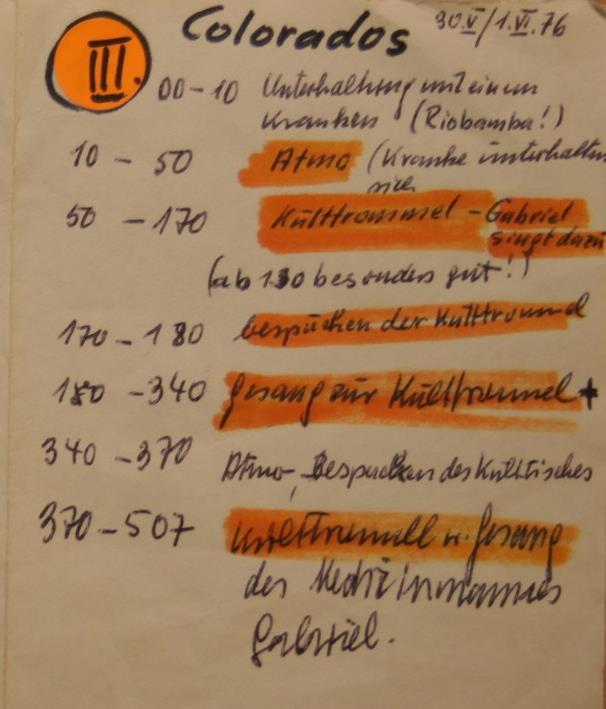 III. Colorados 30.V/1.VI.76
00-10 Unterhaltung mit einem
Kranken (Riobamba!)
10 - 50 Atmo (Kranke unterhalten
sich
50 - 170 Kulttrommel - Gabriel
singt dazu
(ab 130 besonders gut!)
170 - 180 bespucken der Kulttrommel
180 - 340 Gesang zur Kulttrommel +
340 - 370 Atmo, Bespucken des Kulttisches
370 - 507 Kulttrommell u. Gesang
des Medizinmannes
Gabriel.